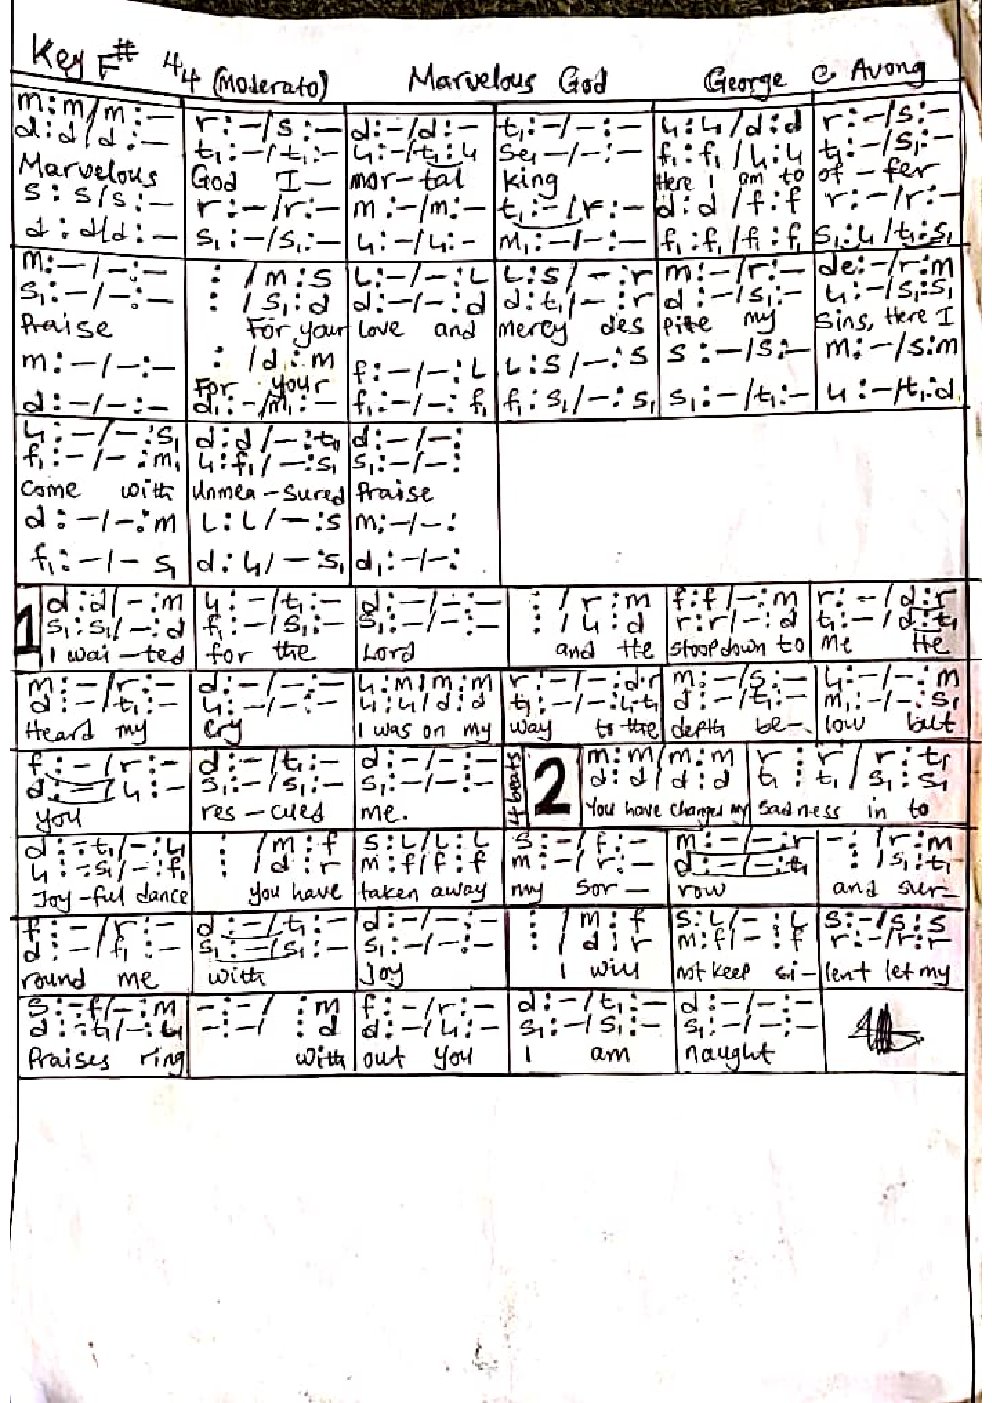 Key F# 4/4 (Moderato) Marvelous God George C Avong
m:m/m:— r:—/s:— d:—/d:— t₁:—/—:— l₁:l₁/d:d r:—/s:—
d:d/d:— t₁:—/t₁:— l₁:—/t₁:l₁ se₁—/—:— f₁:f₁/l₁:l₁ t₁:—/s₁:—
Marvelous God I— mor-tal King Here I am to of-fer
s:s/s:— r:—/r:— m:—/m:— t₁:—/r:— d:d/f:f r:—/r:—
d:d/d:— s₁:—/s₁:— l₁:—/l₁:— m₁:—/—:— f₁:f₁/f₁:f₁ s₁:l₁/t₁:s₁
m:—/—:— : /m:s L:—/—:L L:s/—:r m:—/r:— de:—/r:m
s₁:—/—:— : /s₁:d d:—/—:d d:t₁/—:r d:—/s₁:— l₁:—/s₁:s₁
Praise For your love and mercy des pite my Sins, Here I
m:—/—:— : /d:m f:—/—:L L:s/—:s s:—/s:— m:—/s:m
For your
d:—/—:— d₁:—/m₁:— f₁:—/—:f₁ f₁:s₁/—:s₁ s₁:—/t₁:— l₁:—/t₁:d
l₁:—/—:s₁ d:d/—:t₁ d:—/—:
f₁:—/—:m₁ l₁:f₁/—:s₁ s₁:—/—:
Come with Unmea-sured Praise
d:—/—:m L:L/—:s m:—/—:
f₁:—/— s₁ d:l₁/—:s₁ d₁:—/—:
1 d:d/—:m l₁:—/t₁:— d:—/—:— : /r:m f:f/—:m r:—/d:r
s₁:s₁/—:d f₁:—/s₁:— s₁:—/—:— : /l₁:d r:r/—:d t₁:—/d:t₁
I wai-ted for the Lord and He stoop down to me He
m:—/r:— d:—/—:— l₁:m/m:m r:—/—:d.r m:—/s:— l₁:—/—:m
d:—/t₁:— l₁:—/—:— l₁:l₁/d:d t₁:—/—:l₁.t₁ d:—/t₁:— m₁:—/—:s₁
Heard my cry I was on my way to the depth be- low but
f:—/r:— d:—/t₁:— d:—/—:— 4 beats 2 m:m/m:m r:r/r:t₁
d:—/l₁:— s₁:—/s₁:— s₁:—/—:— d:d/d:d t₁:t₁/s₁:s₁
you res-cued me. You have changed my sadness in to
d:-t₁/—:l₁ : /m:f s:L/L:L s:—/f:— m:—/—:r —:/r:m
l₁:-s₁/—:f₁ : /d:r m:f/f:f m:—/r:— d:—/—:t₁ : /s₁:t₁
Joy-ful dance you have taken away my sor- row and sur-
f:—/r:— d:—/t₁:— d:—/—:— : /m:f s:L/—:L s:—/s:s
d:—/f₁:— s₁:—/s₁:— s₁:—/—:— : /d:r m:f/—:f r:—/r:r
round me with Joy I will not keep si- lent let my
s:-f/—:m —:—/ :m f:—/r:— d:—/t₁:— d:—/—:—
d:-t₁/—:l₁ —:—/ :d d:—/l₁:— s₁:—/s₁:— s₁:—/—:—
Praises ring with out you I am naught